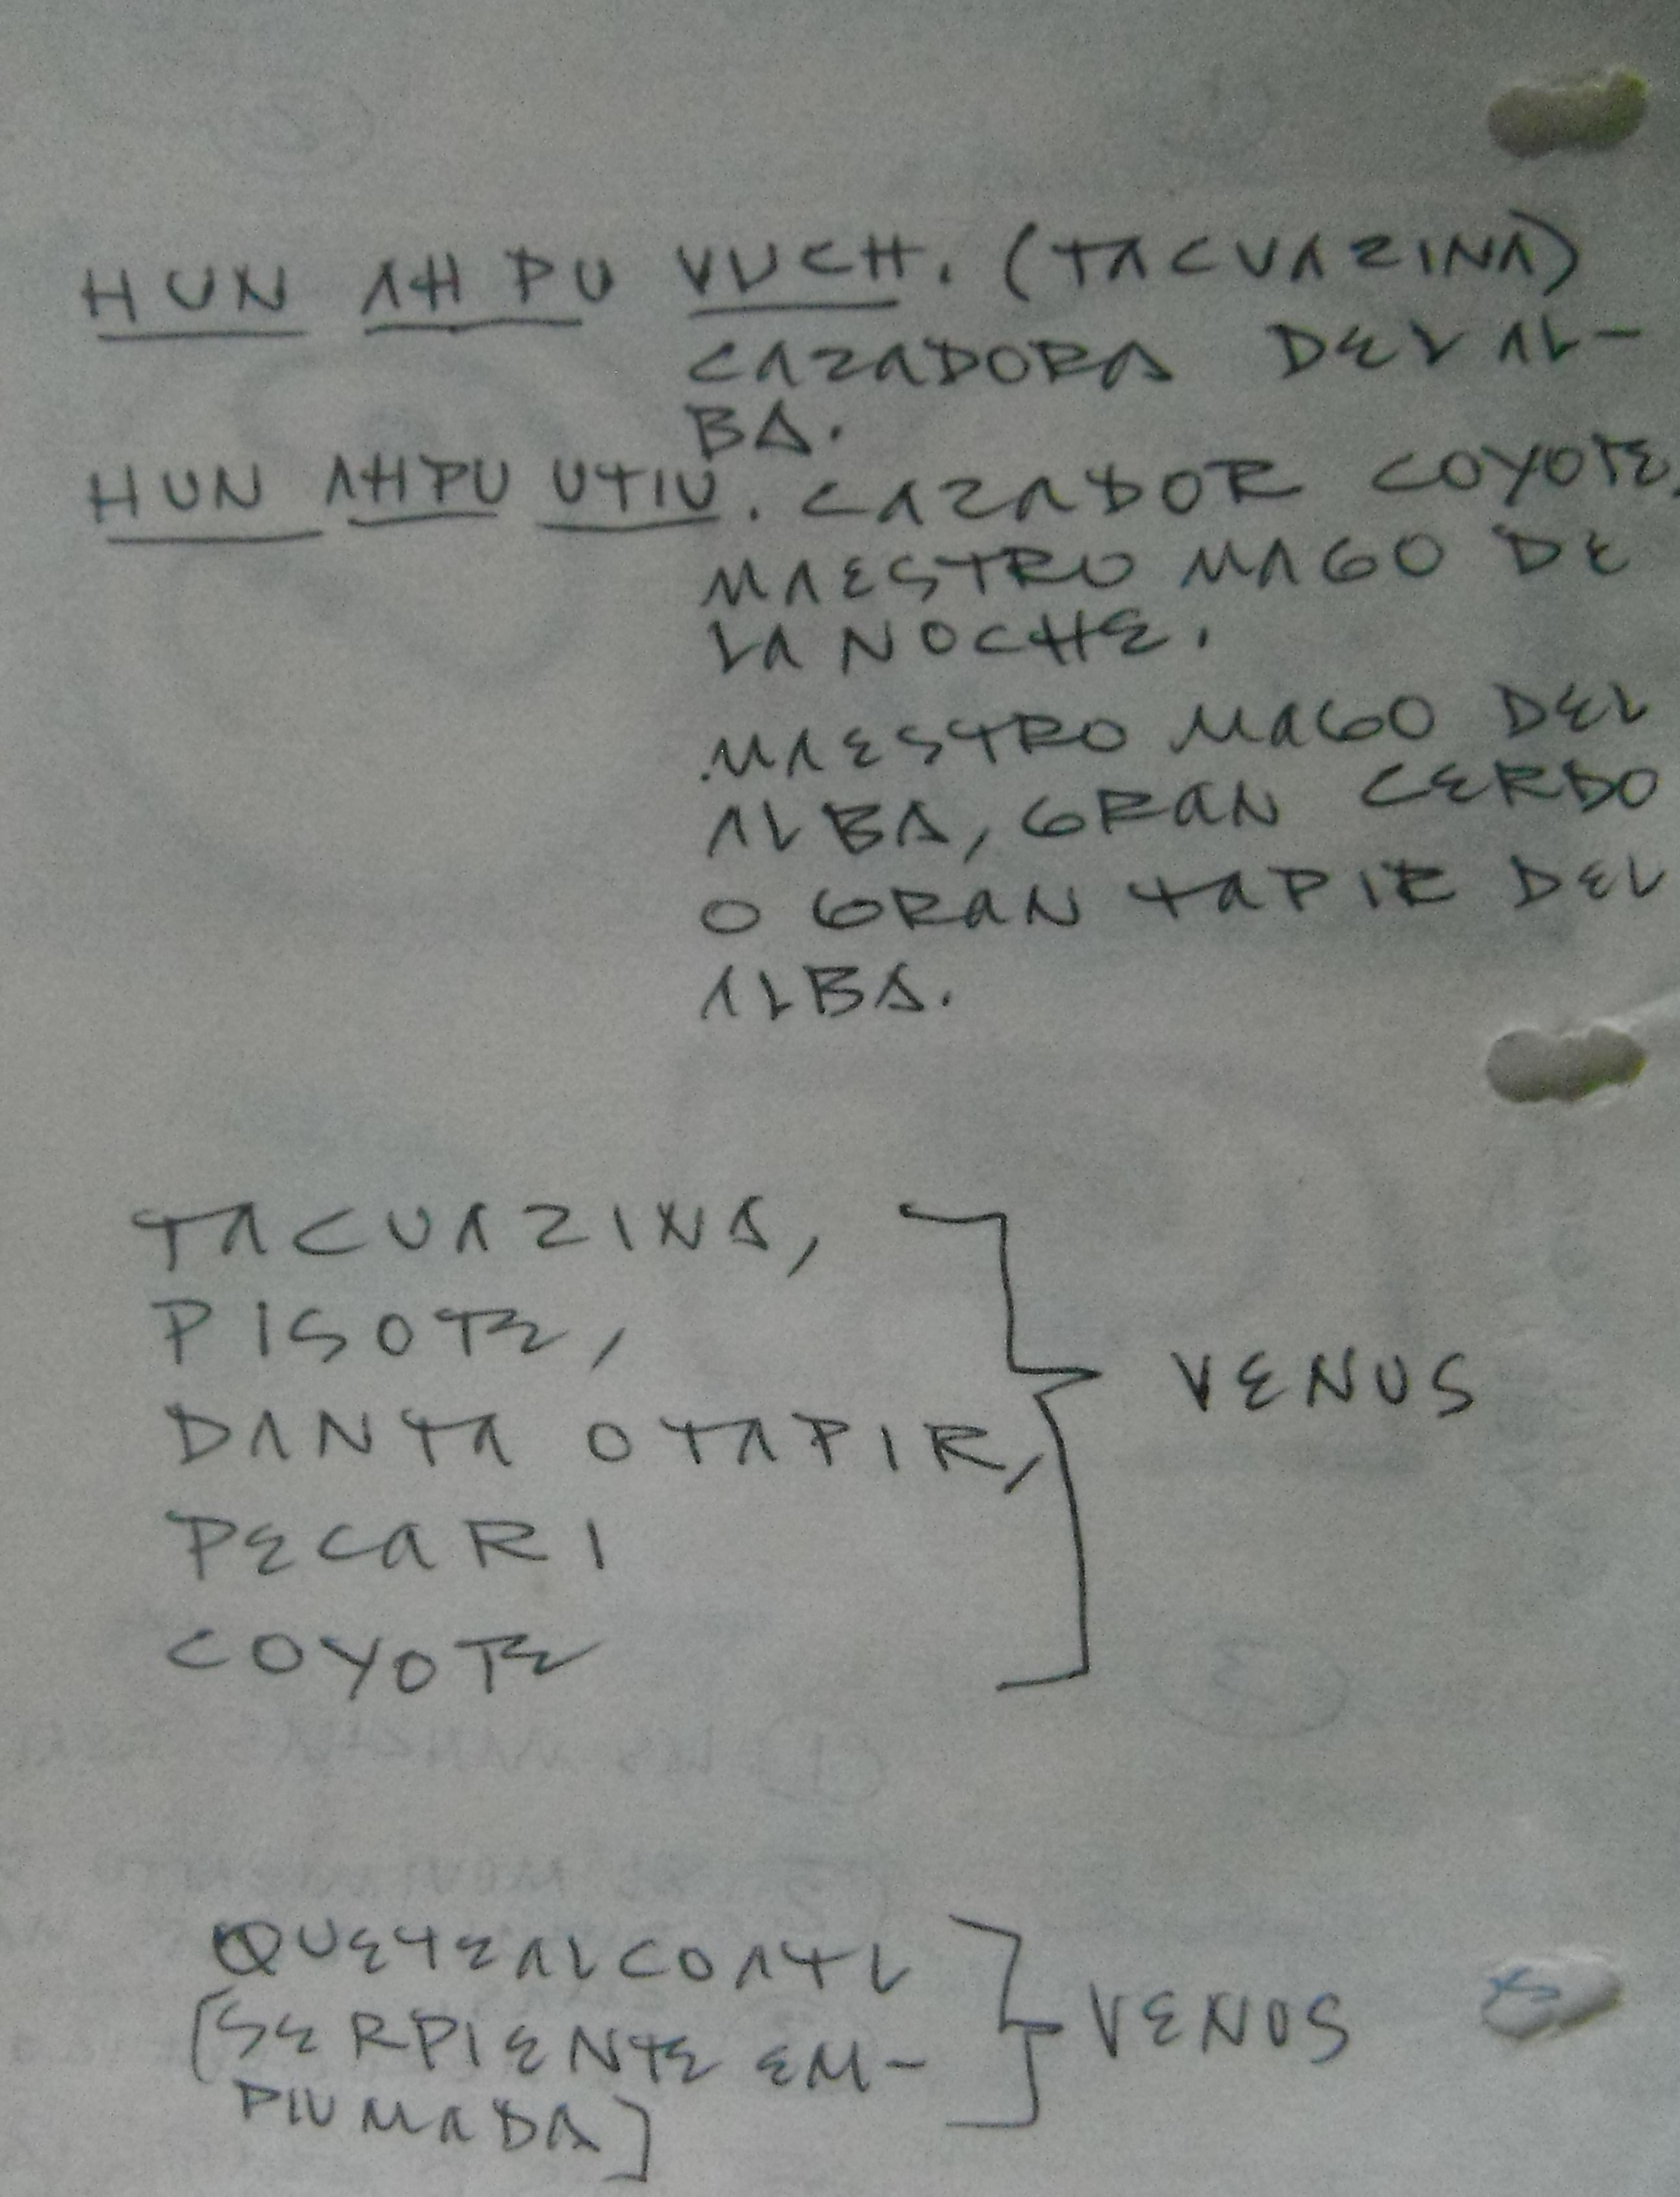 HUN AH PU VUCH. (TACUAZINA)
CAZADORA DEL AL-
BA.
HUN AHPU UTIU. CAZADOR COYOTE.
MAESTRO MAGO DE
LA NOCHE.
.MAESTRO MAGO DEL
ALBA, GRAN CERDO
O GRAN TAPIR DEL
ALBA.
TACUAZINA,
PISOTE,
DANTA O TAPIR,
PECARI
COYOTE
VENUS
QUETZALCOATL
[SERPIENTE EM-
PLUMADA]
VENUS